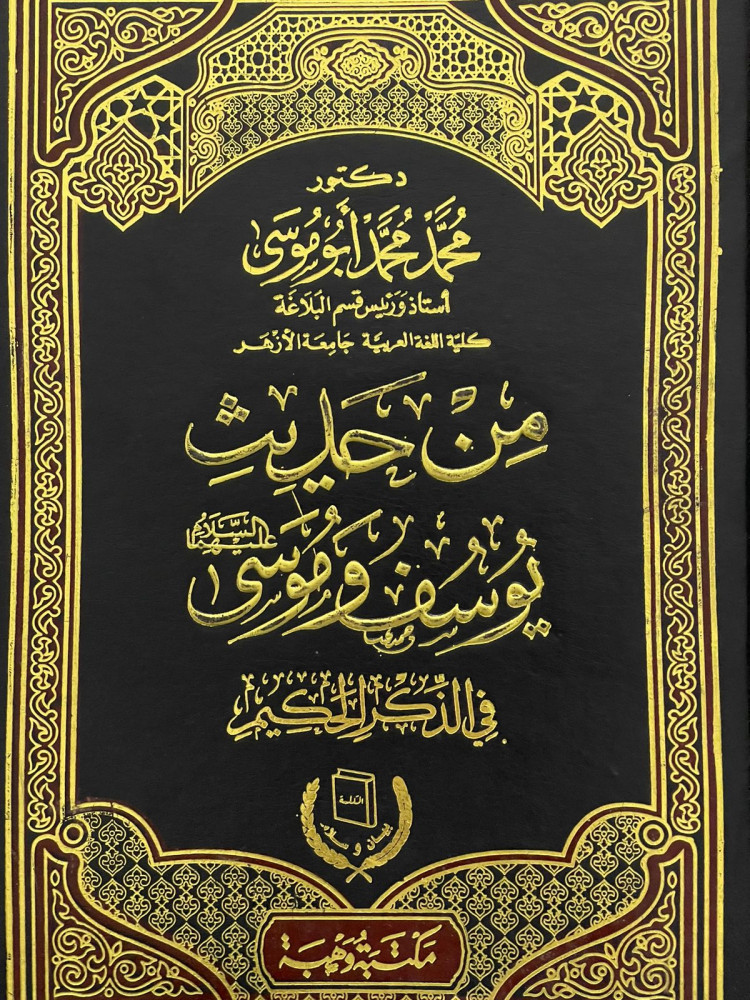 دكتور
مُحمَّد مُحمَّد أَبُو مُوسَى
أستاذ وَرئيس قسم البَلاغَة
كلية اللغة العربية جَامعَة الأزهَر
مِنْ حَدِيثِ
يُوسُف وَمُوسَى عَلَيْهِمَا السَّلَامُ
فِي الذِّكْرِ الحَكِيمِ
مَكتَبَة وَهبَة